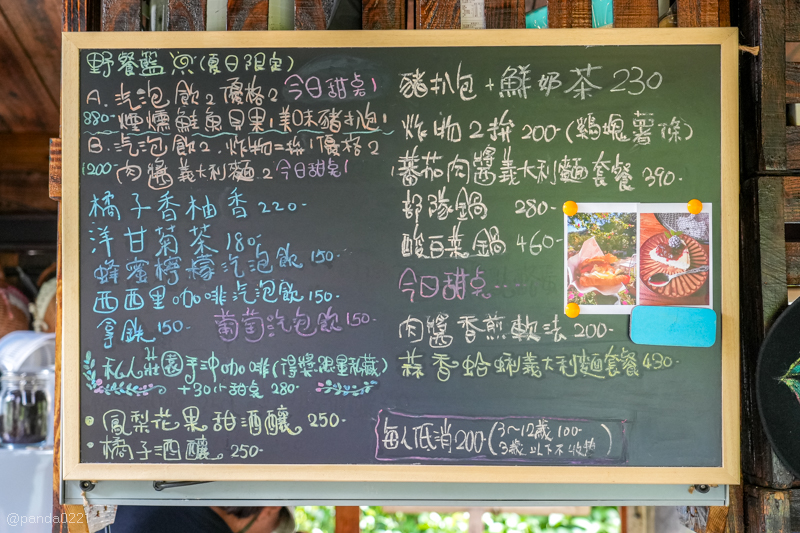 野餐盤 (夏日限定)
A. 汽泡飲2 優格2 今日甜点1
880- 煙燻鮭魚貝果1 美味豬扒包1
B. 汽泡飲2. 炸物=拚1 優格2
1200- 肉醬義大利麵2 今日甜点1
橘子香柚香 220-
洋甘菊茶 180-
蜂蜜檸檬汽泡飲 150-
西西里咖啡汽泡飲 150-
拿鐵 150- 葡萄汽泡飲 150-
私人莊園手沖咖啡(得獎限量私藏)
+30小甜桌 280-
鳳梨花果甜酒釀 250-
橘子酒釀 250-
豬扒包 + 鮮奶茶 230
炸物2拚 200-(鷄塊薯條)
蕃茄肉醬義大利麵套餐 390-
部隊鍋 280-
酸白菜鍋 460-
今日甜点
肉醬香煎軟法 200-
蒜香蛤蜊義大利麵套餐 430-
每人低消200-(3~12歲 100-
3歲以下不收墊)
@panda0221